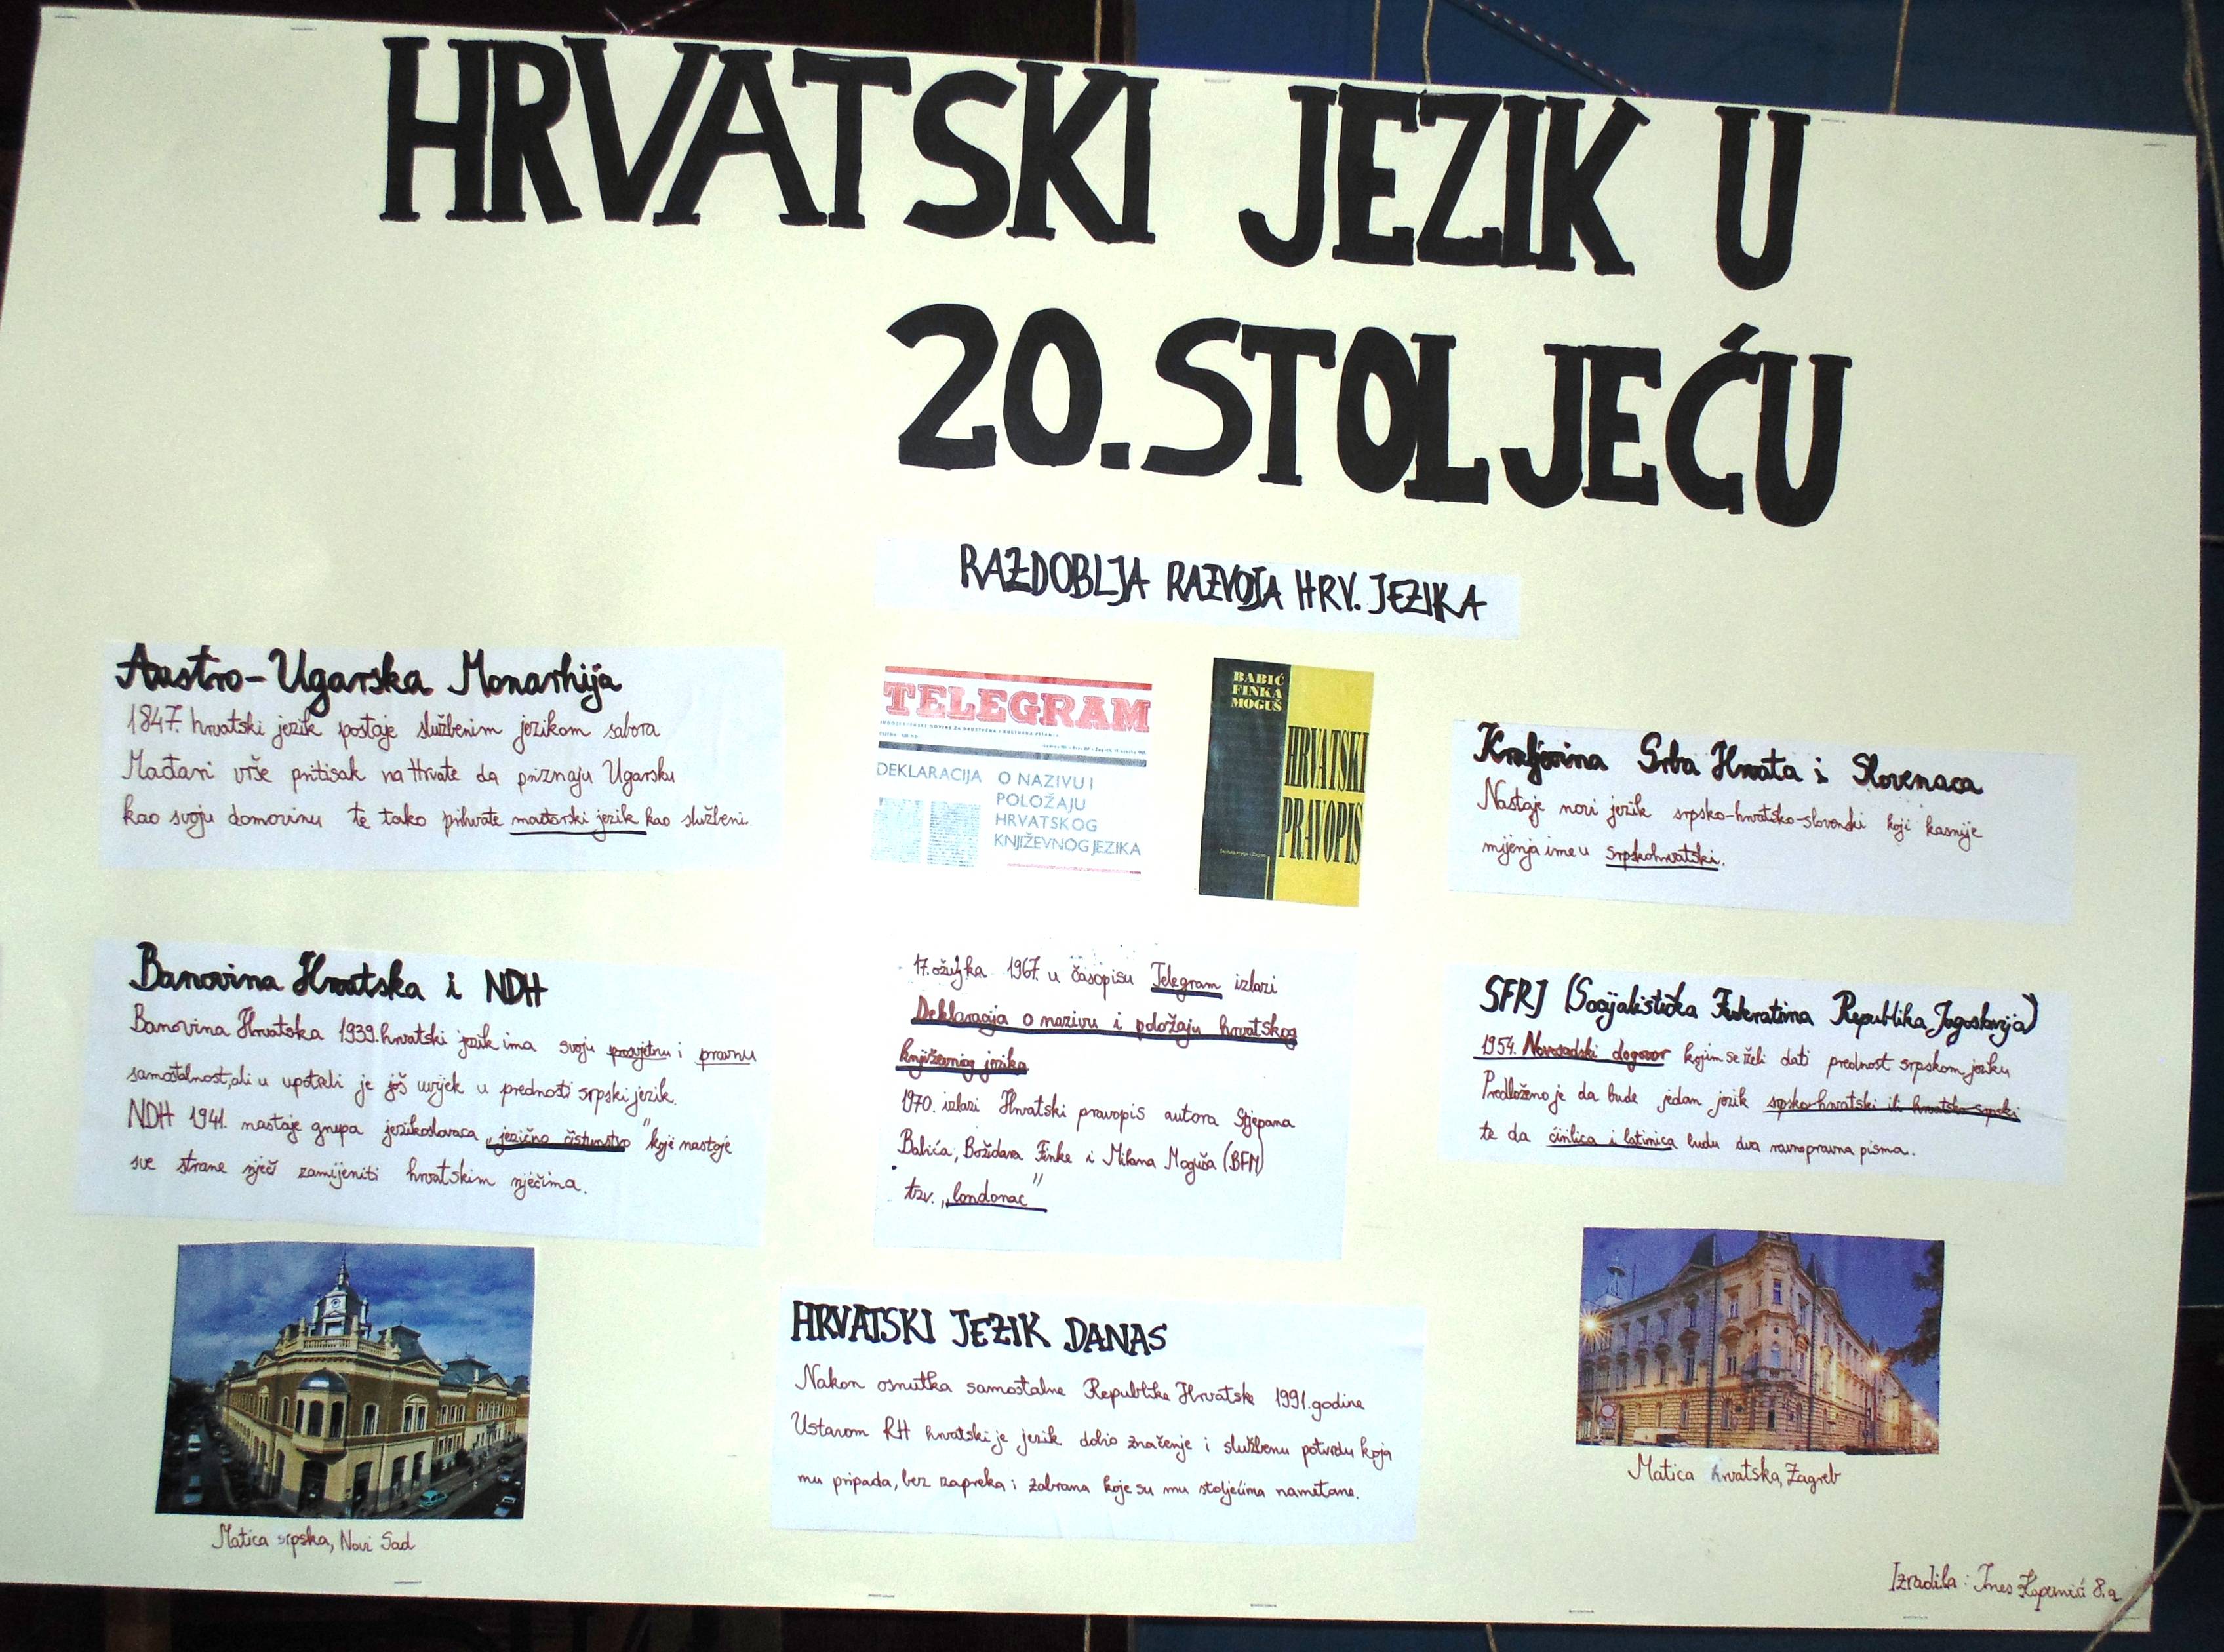 HRVATSKI JEZIK U
20. STOLJEĆU
RAZDOBLJA RAZVOJA HRV. JEZIKA
Austro-Ugarska Monarhija
1847. hrvatski jezik postaje službenim jezikom sabora
Mađari vrše pritisak na Hrvate da priznaju Ugarsku
kao svoju domovinu te tako prihvate mađarski jezik kao službeni.
TELEGRAM
DEKLARACIJA O NAZIVU I
POLOŽAJU
HRVATSKOG
KNJIŽEVNOG JEZIKA
BABIĆ
FINKA
MOGUŠ
HRVATSKI
PRAVOPIS
Kraljevina Srba Hrvata i Slovenaca
Nastaje novi jezik srpsko-hrvatsko-slovenski koji kasnije
mijenja ime u srpskohrvatski.
Banovina Hrvatska i NDH
Banovina Hrvatska 1939. hrvatski jezik ima svoju prosvjetnu i pravnu
samostalnost, ali u upotrebi je još uvijek u prednosti srpski jezik.
NDH 1941. nastaje grupa jezikoslovaca „jezično čistunstvo" koji nastoje
sve strane riječi zamijeniti hrvatskim riječima.
17. ožujka 1967. u časopisu Telegram izlazi
Deklaracija o nazivu i položaju hrvatskog
književnog jezika
1970. izlazi Hrvatski pravopis autora Stjepana
Babića, Božidara Finke i Milana Moguša (BFM)
tzv. „londonac"
SFRJ (Socijalistička Federativna Republika Jugoslavija)
1954. Novosadski dogovor kojim se želi dati prednost srpskom jeziku
Predloženo je da bude jedan jezik srpsko-hrvatski ili hrvatsko-srpski
te da ćirilica i latinica budu dva ravnopravna pisma.
Matica srpska, Novi Sad
HRVATSKI JEZIK DANAS
Nakon osnutka samostalne Republike Hrvatske 1991. godine
Ustavom RH hrvatski je jezik dobio značenje i službenu potvrdu koja
mu pripada, bez zapreka i zabrana koje su mu stoljećima nametane.
Matica hrvatska, Zagreb
Izradila: Ines 8.a